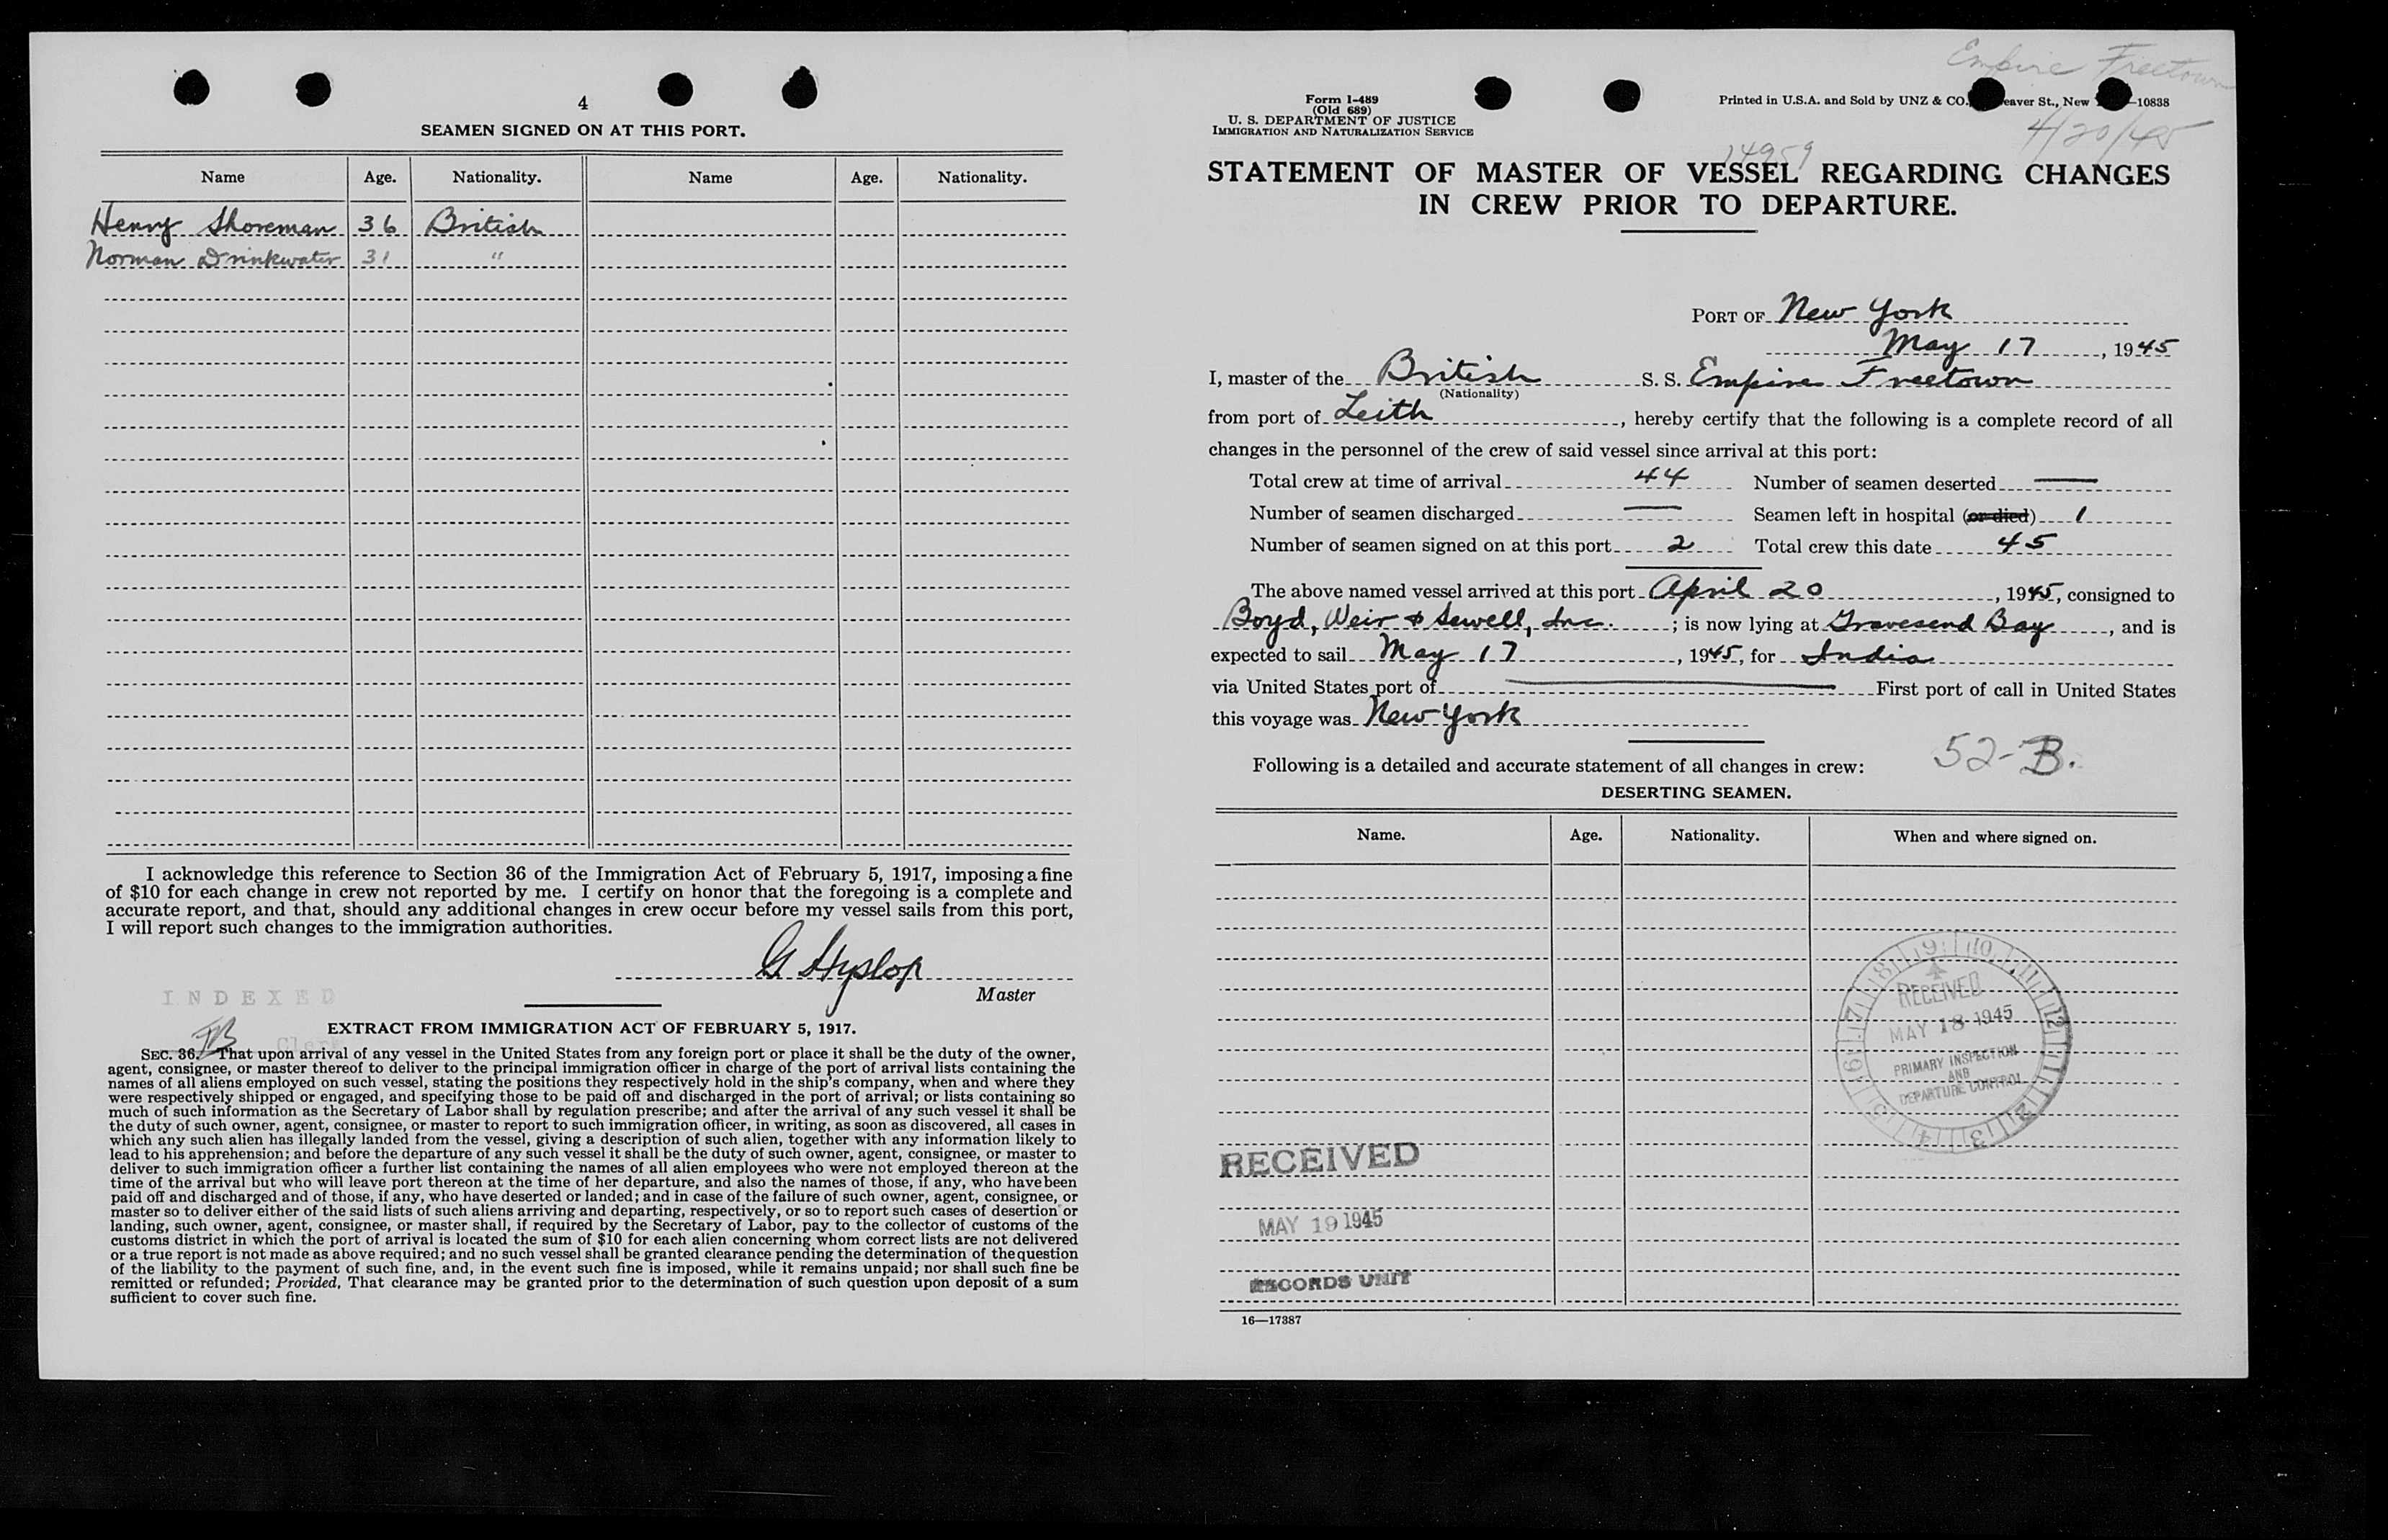 4
SEAMEN SIGNED ON AT THIS PORT.
Name Age. Nationality. Name Age. Nationality.
Henry Shoreman 36 British
Norman Drinkwater 31 "
I acknowledge this reference to Section 36 of the Immigration Act of February 5, 1917, imposing a fine
of $10 for each change in crew not reported by me. I certify on honor that the foregoing is a complete and
accurate report, and that, should any additional changes in crew occur before my vessel sails from this port,
I will report such changes to the immigration authorities.
G Hyslop
Master
INDEXED
EXTRACT FROM IMMIGRATION ACT OF FEBRUARY 5, 1917.
Clerk
SEC. 36. That upon arrival of any vessel in the United States from any foreign port or place it shall be the duty of the owner,
agent, consignee, or master thereof to deliver to the principal immigration officer in charge of the port of arrival lists containing the
names of all aliens employed on such vessel, stating the positions they respectively hold in the ship's company, when and where they
were respectively shipped or engaged, and specifying those to be paid off and discharged in the port of arrival; or lists containing so
much of such information as the Secretary of Labor shall by regulation prescribe; and after the arrival of any such vessel it shall be
the duty of such owner, agent, consignee, or master to report to such immigration officer, in writing, as soon as discovered, all cases in
which any such alien has illegally landed from the vessel, giving a description of such alien, together with any information likely to
lead to his apprehension; and before the departure of any such vessel it shall be the duty of such owner, agent, consignee, or master to
deliver to such immigration officer a further list containing the names of all alien employees who were not employed thereon at the
time of the arrival but who will leave port thereon at the time of her departure, and also the names of those, if any, who have been
paid off and discharged and of those, if any, who have deserted or landed; and in case of the failure of such owner, agent, consignee, or
master so to deliver either of the said lists of such aliens arriving and departing, respectively, or so to report such cases of desertion or
landing, such owner, agent, consignee, or master shall, if required by the Secretary of Labor, pay to the collector of customs of the
customs district in which the port of arrival is located the sum of $10 for each alien concerning whom correct lists are not delivered
or a true report is not made as above required; and no such vessel shall be granted clearance pending the determination of the question
of the liability to the payment of such fine, and, in the event such fine is imposed, while it remains unpaid; nor shall such fine be
remitted or refunded; Provided, That clearance may be granted prior to the determination of such question upon deposit of a sum
sufficient to cover such fine.
Empire Freetown
4/20/45
Form I-489
(Old 689)
U. S. DEPARTMENT OF JUSTICE
IMMIGRATION AND NATURALIZATION SERVICE
Printed in U.S.A. and Sold by UNZ & CO., eaver St., New —10838
14959
STATEMENT OF MASTER OF VESSEL REGARDING CHANGES
IN CREW PRIOR TO DEPARTURE.
PORT OF New York
May 17, 1945
I, master of the British S. S. Empire Freetown
(Nationality)
from port of Leith, hereby certify that the following is a complete record of all
changes in the personnel of the crew of said vessel since arrival at this port:
Total crew at time of arrival 44 Number of seamen deserted —
Number of seamen discharged — Seamen left in hospital (or died) 1
Number of seamen signed on at this port 2 Total crew this date 45
The above named vessel arrived at this port April 20, 1945, consigned to
Boyd, Weir & Sewell, Inc.; is now lying at Gravesend Bay, and is
expected to sail May 17, 1945, for India
via United States port of — First port of call in United States
this voyage was New York
52-B.
Following is a detailed and accurate statement of all changes in crew:
DESERTING SEAMEN.
Name. Age. Nationality. When and where signed on.
9 10 11 12 1 2 3 4 5 6 7 8
RECEIVED
MAY 18 1945
PRIMARY INSPECTION
AND
DEPARTURE CONTROL
RECEIVED
MAY 19 1945
RECORDS UNIT
16—17387